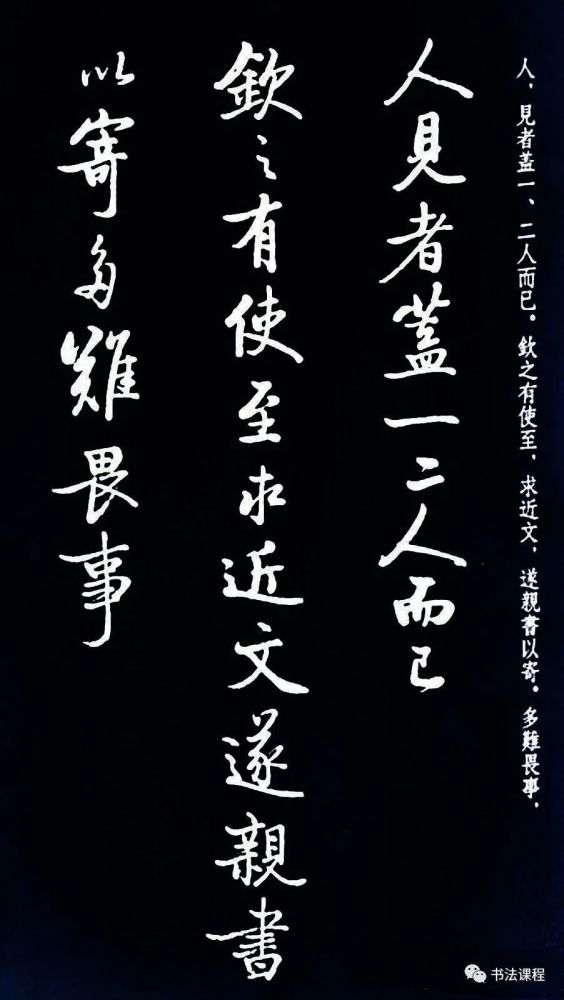 人，見者蓋一、二人而已。欽之有使至，求近文，遂親書以寄。多難畏事，
人見者蓋一二人而已
欽之有使至求近文遂親書
以寄多難畏事
书法课程